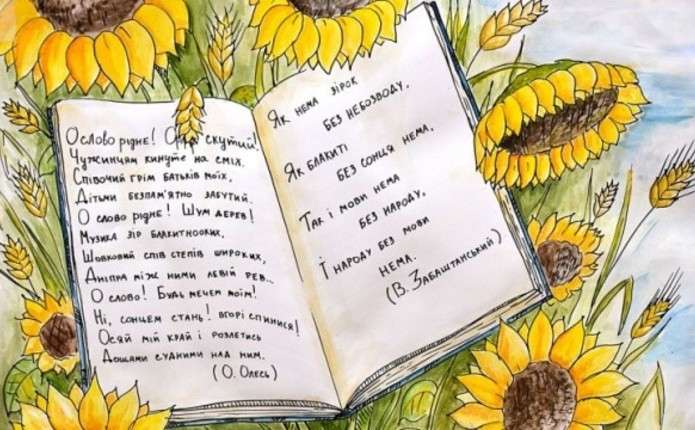 О слово рідне! О скутий!
Чужинцям кинуте на сміх.
Співочий грім батьків моїх,
Дітьми безпам'ятно забутий.
О слово рідне! Шум дерев!
Музика зір блакитнооких,
Шовковий спів степів широких,
Дніпра між ними левій рев..
О слово! Будь мечем моїм!
Ні, сонцем стань! вгорі спинися!
Осяй мій край і розлетись
Дощами судними над ним.
(О. Олесь)
Як нема зірок
без небозводу,
Як блакиті
без сонця нема,
Так і мови нема
без народу,
Ї народу без мови
нема.
(В. Забаштанський)